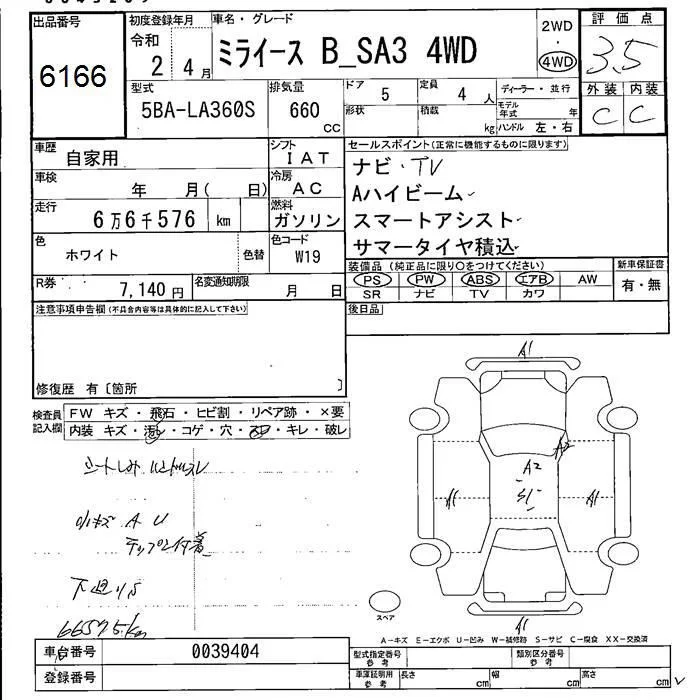 出品番号
6166
初度登録年月
令和
2 4月
車名・グレード
ミライース B_SA3 4WD
2WD
・
4WD
評価点
3.5
外装 内装
C C
型式
5BA-LA360S
排気量
660
cc
ドア
5
形状
定員
4 人
積載
kg
ディーラー・並行
モデル年式 年
ハンドル 左・右
車歴
自家用
シフト
IAT
車検
年 月( 日)
冷房
AC
走行
6万6千576 km
燃料
ガソリン
色
ホワイト
色替
色コード
W19
R券
7,140円
名変通知期限
月 日
セールスポイント(正常に機能するものに限ります)
ナビ・TV
Aハイビーム
スマートアシスト
サマータイヤ積込
装備品(純正品に限り○をつけてください)
PS PW ABS エアB AW
SR ナビ TV カワ
新車保証書
有・無
後日品
注意事項申告欄(不具合内容等は具体的に記入して下さい)
修復歴 有〔箇所 〕
検査員記入欄
FW キズ・飛石・ヒビ割・リペア跡・×要
内装 キズ・汚レ・コゲ・穴・スレ・キレ・破レ
シートしみ ハンドルスレ
小キズ A U
下廻りS
66575km
A1
A2
A2
S1
A1
A1
A1
スペア
A-キズ E-エクボ U-凹み W-補修跡 S-サビ C-腐食 XX-交換済
車台番号
0039404
登録番号
型式指定番号
参考
類別区分番号
参考
車庫証明用
参考
長さ cm
幅 cm
高さ cm